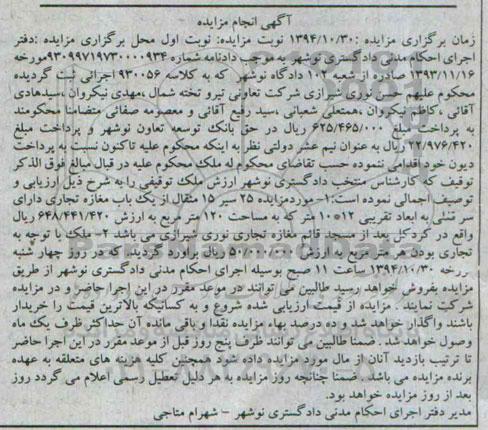 آگهی انجام مزایده
زمان برگزاری مزایده :۱۳۹۴/۱۰/۳۰ نوبت مزایده: نوبت اول محل برگزاری مزایده :دفتر
اجرای احکام مدنی دادگستری نوشهر به موجب دادنامه شماره ۹۳۰۹۹۷۱۹۷۳۰۰۰۹۳۴مورخه
۱۳۹۳/۱۱/۱۶ صادره از شعبه ۱۰۲ دادگاه نوشهر که به کلاسه ۹۳۰۰۵۶ اجرائی ثبت گردیده
محکوم علیهم ۱- نوری شیرازی شرکت تعاونی نیرو تخته شمال ،مهدی نیکروان ،سیدهادی
آقائی ،کاظم نیکروان ،همتعلی شعبانی ،سید رفیع آقائی و معصومه صفائی متضامنا محکومند
به پرداخت مبلغ ۶۲۵/۴۶۵/۰۰۰ ریال در حق بانک توسعه تعاون نوشهر و پرداخت مبلغ
۲۲/۹۷۶/۴۲۰ریال به عنوان نیم عشر دولتی نظر به اینکه محکوم علیه تاکنون نسبت به پرداخت
دیون خود اقدامی ننموده حسب تقاضای محکوم له ملک محکوم علیه در قبال مبالغ فوق الذکر
توقیف که کارشناس منتخب دادگستری نوشهر ارزش ملک توقیفی را به شرح ذیل ارزیابی و
توصیف اجمالی نموده است:۱-موردمزایده ۲۵ سیر ۱۵ مثقال از یک باب مغازه تجاری دارای
سر تفنی به ابعاد تقریبی ۱۲*۱۰ متر که به مساحت ۱۲۰ متر مربع به ارزش ۶۴۸/۴۴۱/۴۲۰ریال
واقع در کردکل بعد از مسجد قائم مغازه تجاری نوری شیرازی می باشد ۲- ملک با توجه به
تجاری بودن هر متر مربع به ارزش ۵۰/۰۰۰/۰۰۰ ریال برآورد گردید. که در روز چهار شنبه
مورخه ۱۳۹۴/۱۰/۳۰ ساعت ۱۱ صبح بوسیله اجرای احکام مدنی دادگستری نوشهر از طریق
مزایده بفروش خواهد رسید طالبین می توانند در موعد مقرر در این اجرا حاضر و در مزایده
شرکت نمایند . مزایده از قیمت ارزیابی شده شروع و به کسانیکه بالاترین قیمت را خریدار
باشند واگذار خواهد شد و ده درصد بهاء مزایده نقدا و باقی مانده آن حداکثر ظرف یک ماه
وصول خواهد شد . ضمنا طالبین می توانند ظرف پنج روز قبل از موعد مقرر در این اجرا حاضر
تا ترتیب بازدید آنان از مال مورد مزایده داده شود همچنین کلیه هزینه های متعلقه به عهده
برنده مزایده می باشد . ضمنا چنانچه روز مزایده به هر دلیل تعطیل رسمی اعلام می گردد روز
بعد از روز مزایده خواهد بود.
مدیر دفتر اجرای احکام مدنی دادگستری نوشهر - شهرام متاجی
ParsNamadData